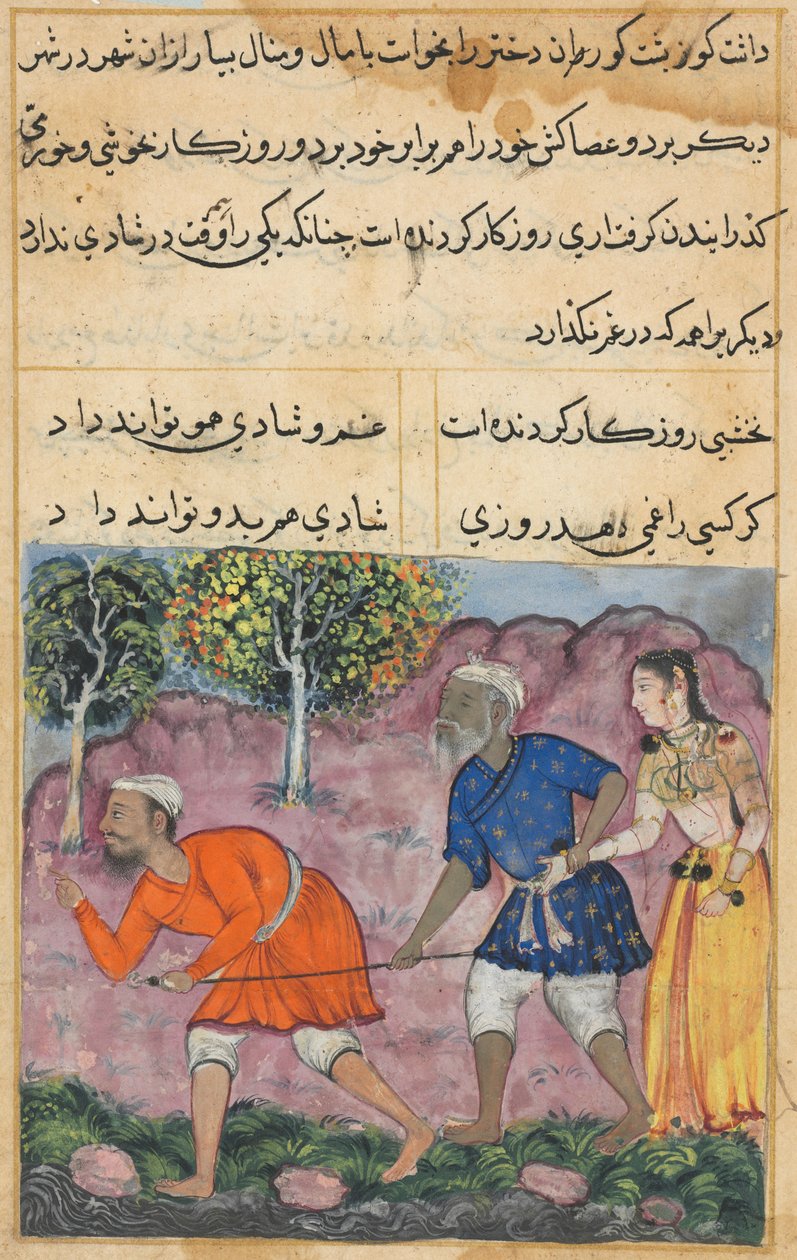 داشت کوز پشت کور ران دختر را بخواست با مال و منال بسیار ازان شهر در شهر
دیکر برد و عصاکش خود را هم برابر خود برد و روزکار بخوشی و خورمی
کذرانیدن کرفت اری روزکار کردنده است چنانکه یکی را وقت در شادی ندارد
دیکر را همه که در غم نکذارد
نخشبی روزکار کردنده است غم و شادی هو تواند داد
کر کسی را غمی دهد روزی شادی هم بدو تواند داد